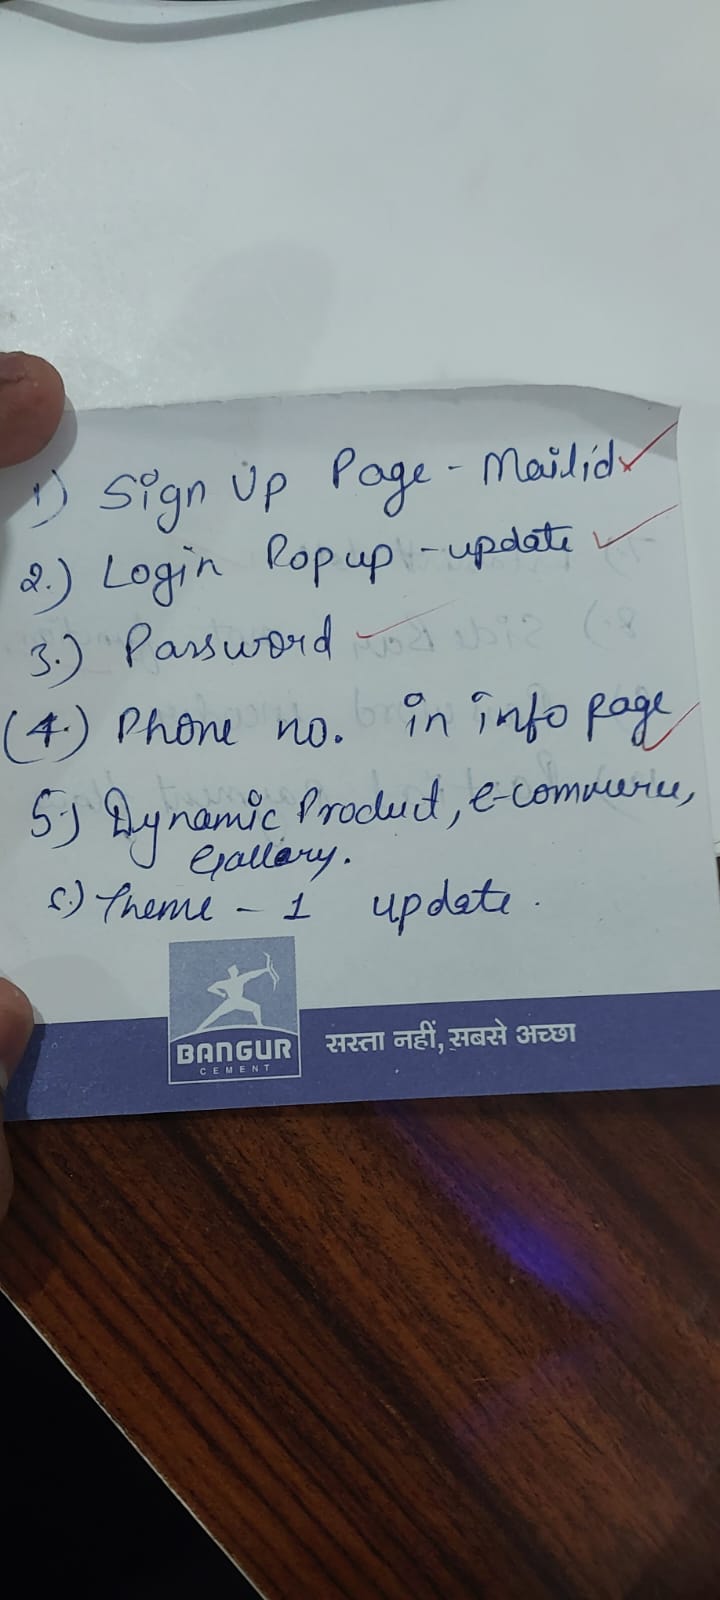 1) Sign Up Page - Mailid
2.) Login Popup - update
3.) Password
(4.) Phone no. in info page
5.) Dynamic Product, e-commeru,
Gallary.
6.) Theme - 1 update.
BANGUR
CEMENT
सस्ता नहीं, सबसे अच्छा